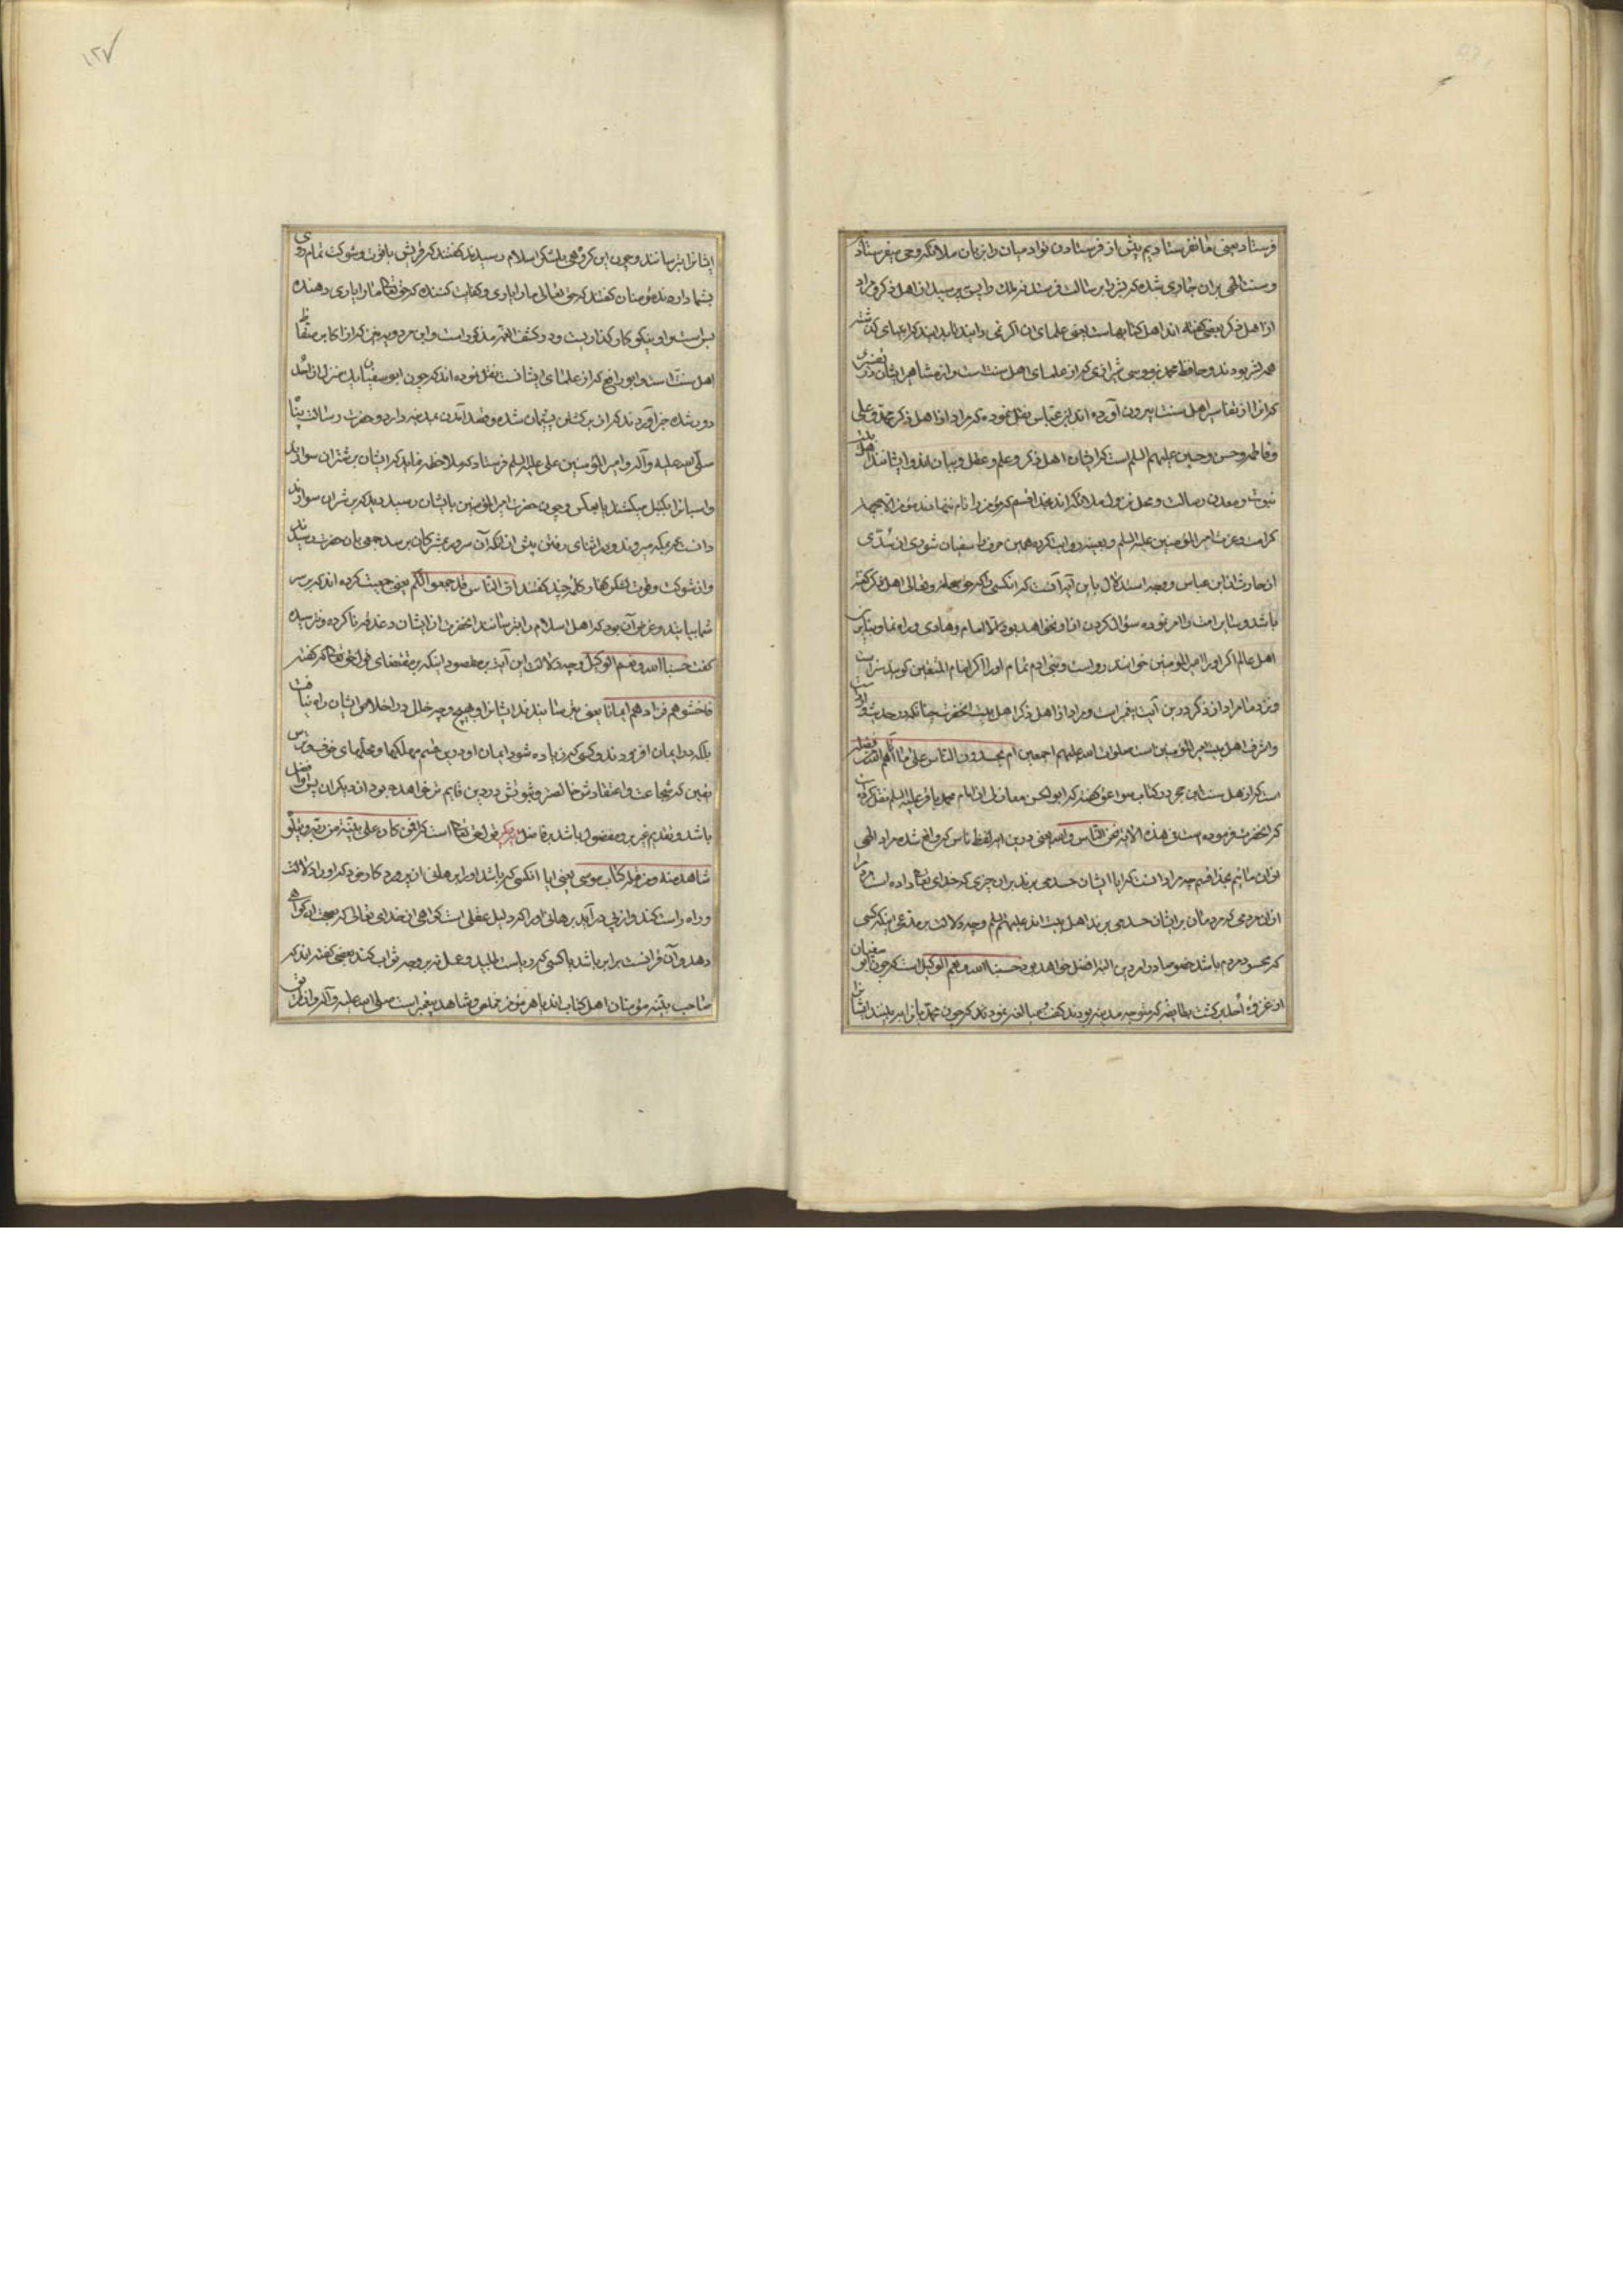 فرستاد یعنی ما نفرستادیم پیش از فرستادن تو آدمیان را بزبان ملائکه وحی میفرستاد
و سنت الهی بران جاری شده که بشر را برسالت فرستد نه ملک را پس بپرسید از اهل ذکر و مراد
از اهل ذکر بعضی گفته اند اهل کتابهاست یعنی علمای ان اگر نمی دانید تا بدانید که انبیای گذشته
همه بشر بودند و حافظ محمد بن موسی شیرازی که از علمای اهل سنت است و از مشاهیر ایشان در تفسیری
که انرا از تفاسیر اهل سنت بیرون آورده اند از ابن عباس نقل نموده که مراد از اهل ذکر محمد و علی
و فاطمه و حسن و حسین علیهم السلم است که ایشان اهل ذکر و علم و عقل و بیان اند و ایشانند اهل بیت
نبوت و معدن رسالت و محل نزول ملائکه اند بخدا قسم که مؤمن را نام ننهادند مؤمن الا بجهت
کرامت و عزت امیر المؤمنین علیه السلم و بعینه روایت کرده همین حرف را سفیان ثوری از سدی
از حارث از ابن عباس و وجه استدلال باین آیه آنست که انکسی را که حق سبحانه و تعالی اهل ذکر گفته
باشد و سایر امت را امر نموده سؤال کردن از او نخواهد بود الا امام و هادی و راه نما و بنابرین
اهل عالم اگر او را امیر المومنین خوانند رواست و بنی ادم تمام او را اگر امام المتقین گویند سزاست
و نزد ما مراد از ذکر درین آیت پیغمبر است و مراد از اهل ذکر اهل بیت انحضرت چنانکه در حدیث وارد است
و اشرف اهل بیت امیر المؤمنین است صلوات الله علیهم اجمعین ام یحسدون الناس علی ما آتاهم الله من فضله
است که از اهل سنت ابن حجر در کتاب صواعق گفته که ابو الحسن مغازلی از امام محمد باقر علیه السلم نقل کرده
که انحضرت فرموده است فی هذه الآیه نحن الناس والله یعنی درین آیه لفظ ناس که واقع شده مراد الهی
از ان مائیم بخدا قسم چه مراد آنست که ایا ایشان حسد می برند بران چیزی که خدای تعالی داده است مردم را
از ان مردمی که مردمان بر ایشان حسد می برند اهل بیت اند علیهم السلم و وجه دلالت بر مدعی اینکه کسی
که محسود مردم باشد خصوصا در امر دین البته افضل خواهد بود حسبنا الله و نعم الوکیل است که چون ابو سفیان
از غزوه احد برگشت بطایفه که متوجه مدینه بودند گفت مبالغه نمودند که چون محمد یانرا ببینند ایشانرا
ایشانرا بترسانند و چون این گروهی بلشکر اسلام رسیدند گفتند که قریش با قوت و شوکت تمام روی
بشما دارند مؤمنان گفتند که حق تعالی ما را یاری و کفایت کننده که حق تعالی ما را یاری دهنده
بس است و او نیکو کار گذاریست و در کشف الغمه مذکور است و ابن مردویه نیز که از اکابر حفاظ
اهل سنت است و ابو رافع که از علمای ایشانست نقل نموده اند که چون ابو سفیان یک منزل از احد
دور شده خبر آوردند که از برگشتن پشیمان شده و قصد آمدن مدینه دارد و حضرت رسالت پناه
صلی الله علیه و آله و امیر المؤمنین علی علیه السلم فرستاد که ملاحظه نماید که ایشان بر شتران سوارند
و اسبانرا بکتل میکشند یا بعکس و چون حضرت امیر المؤمنین بایشان رسید دید که بر شتران سوارند
دانست که بمکه میروند و در اثنای رفتن پیش از انکه آن سرور بمشرکان برسد جمعی بان حضرت رسیدند
و از شوکت و قوت لشکر کفار کلمه چند گفتند ان الناس قد جمعوا لکم یعنی جمعیت کرده اند که بر سر
شما بیایند و غرض آن بود که اهل اسلام را بترسانند انحضرت از ایشان دغدغه نا کرده و نترسیده
گفت حسبنا الله و نعم الوکیل وجه دلالت این آیت بر مقصود اینکه بر مقتضای قوله تعالی که گفته
فاخشوهم فزادهم ایمانا یعنی بترسانیدند ایشانرا و هیچ وجه خلل در اخلاص ایشان راه نیافت
بلکه در ایمان افزودند و کسی که زیاده شود ایمان او درین قسم مهلکها و محلهای خوف و ترس
یقین که شجاعت و اعتقادش خالصتر و ثبوتش در دین قایم تر خواهد بود از دیگران پس او افضل
باشد و تقدیم غیر برو مفضول باشد بر فاضل دیگر قوله تعالی است که افمن کان علی بینة من ربه و یتلوه
شاهد منه و من قبله کتاب موسی یعنی ایا انکسی که باشد او را برهانی از پروردگار خود که او را دلالت
و راه راست کند و از پی در آید برهانی او را که دلیل عقلی است گواهی از خدای تعالی که بصحت ان گواهی
دهد و آن قرآنست برابر باشد با کسی که ریاست طلبید و عمل نه بر وجه ثواب کند بعضی گفته اند که
صاحب بینه مؤمنان اهل کتاب اند یا هر مؤمن مخلص و شاهد پیغمبر است صلی الله علیه و آله و از طرق